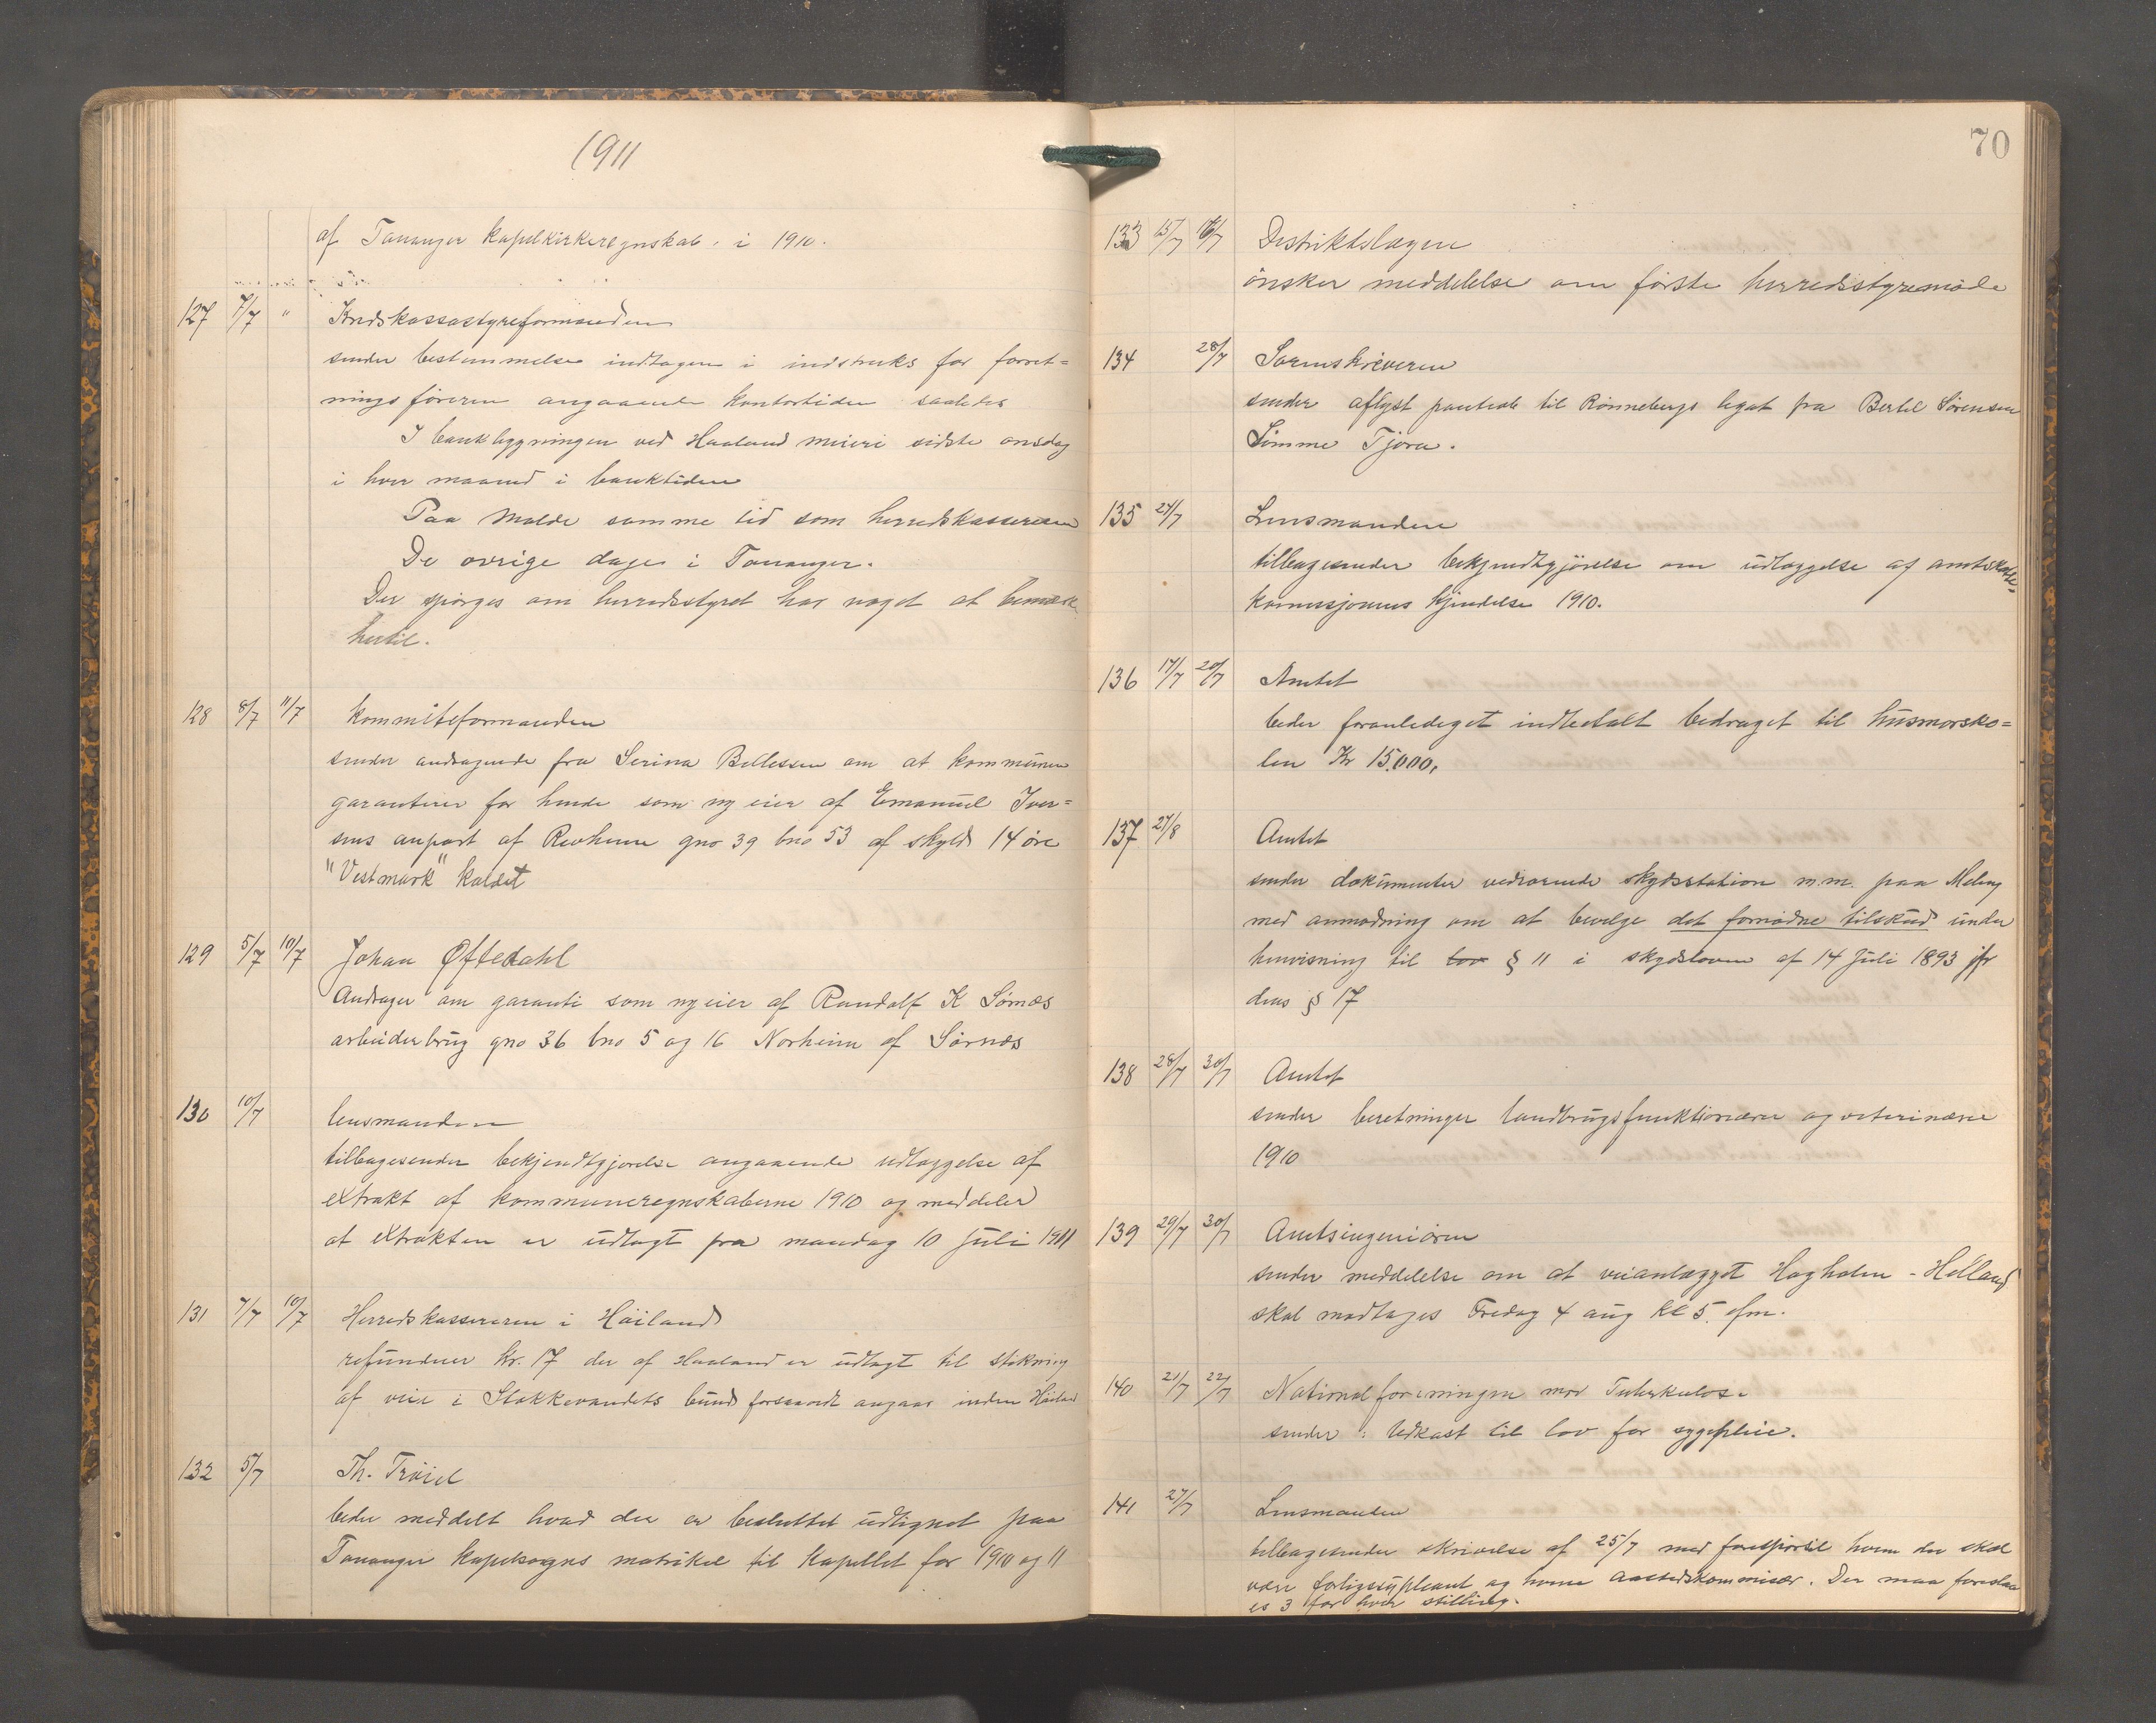 1911
af Tananger kapelkirkeregnskab i 1910.
127 7/7 " Kredskassastyreformanden
sender bestemmelse indtagen i instruks for forret=
ningsføreren angaaende kontortiden saaledes
I bankbygningen ved Haaland meieri sidste onsdag
i hver maaned i banktiden
Paa Malde samme tid som herredskassereren
De øvrige dage i Tananger.
Der spørges om herredsstyret har noget at bemærke
hertil.
128 8/7 11/7 Kommiteformanden
sender andragende fra Serina Bellessen om at kommunen
garanterer for hende som ny eier af Emanuel Iver=
sens anpart af Revheim gno 39 bno 53 af skyld 14 øre
"Vestmark" kaldet
129 5/7 10/7 Johan Øftedahl
Andrager om garanti som ny eier af Randalf K Sørnæs
arbeiderbrug gno 36 bno 5 og 16 Norheim af Sørnæs
130 10/7 Lensmanden
tilbagesender bekjendtgjørelse angaaende udlæggelse af
extrakt af kommuneregnskaberne 1910 og meddeler
at extrakten er udlagt fra mandag 10 Juli 1911
131 7/7 10/7 Herredskassereren i Høiland
refunderer kr. 17 der af Haaland er udlagt til stikning
af veie i Stokkevandets bund forsaavidt angaar inden Høiland
132 5/7 Th. Trøiel
beder meddelt hvad der er besluttet udlignet paa
Tananger kapelsogns matrikel til kapellet for 1910 og 11
70
133 15/7 16/7 Distriktslægen
ønsker meddelelse om første herredsstyremøde
134 28/7 Sorenskriveren
sender aflyst panteob til Rønnebergs legat fra Bertil Sørensen
Sømme Tjora.
135 21/7 Lensmanden
tilbagesender bekjendtgjørelse om udlæggelse af amtskatte=
komissjonens kjendelse 1910.
136 17/7 20/7 Amtet
beder foranlediget indbetalt bidraget til husmorsko=
len Kr 15.000,
137 27/8 Amtet
sender dokumenter vedrørende skydsstation m.m. paa Meling
med anmodning om at bevilge det fornødne tilskud under
henvisning til lov § 11 i skydsloven af 14 Juli 1893 jfr
dens § 17
138 28/7 30/7 Amtet
sender beretninger landbrugsfunktionærer og veterinærer
1910
139 29/7 30/7 Amtsingeniøren
sender meddelelse om at veianlægget Hagholen - Helland
skal modtages Fredag 4 aug kl 5. efm.
140 21/7 22/7 Nationalforeningen mod Tuberkulose
sender: Udkast til lov for sygepleie.
141 27/7 Lensmanden
tilbagesender skrivelse af 25/7 med forespørsel hvem der skal
være forligssupleant og hvem aastedskommisær. Der maa foreslaa
es 3 for hver stilling.